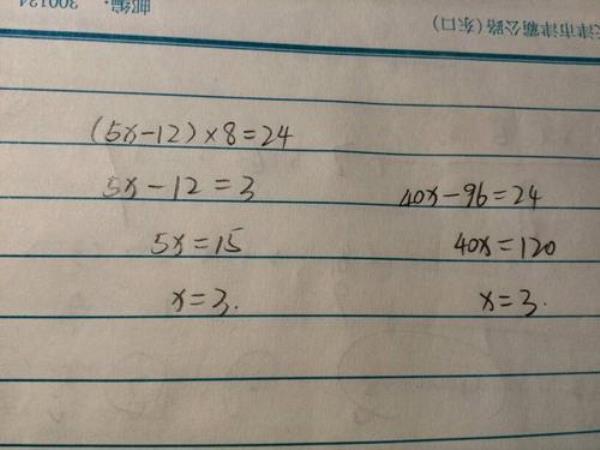 天津市津霸公路(东口) 邮编: 300124
(5x-12)×8=24
5x-12=3 40x-96=24
5x=15 40x=120
x=3. x=3.